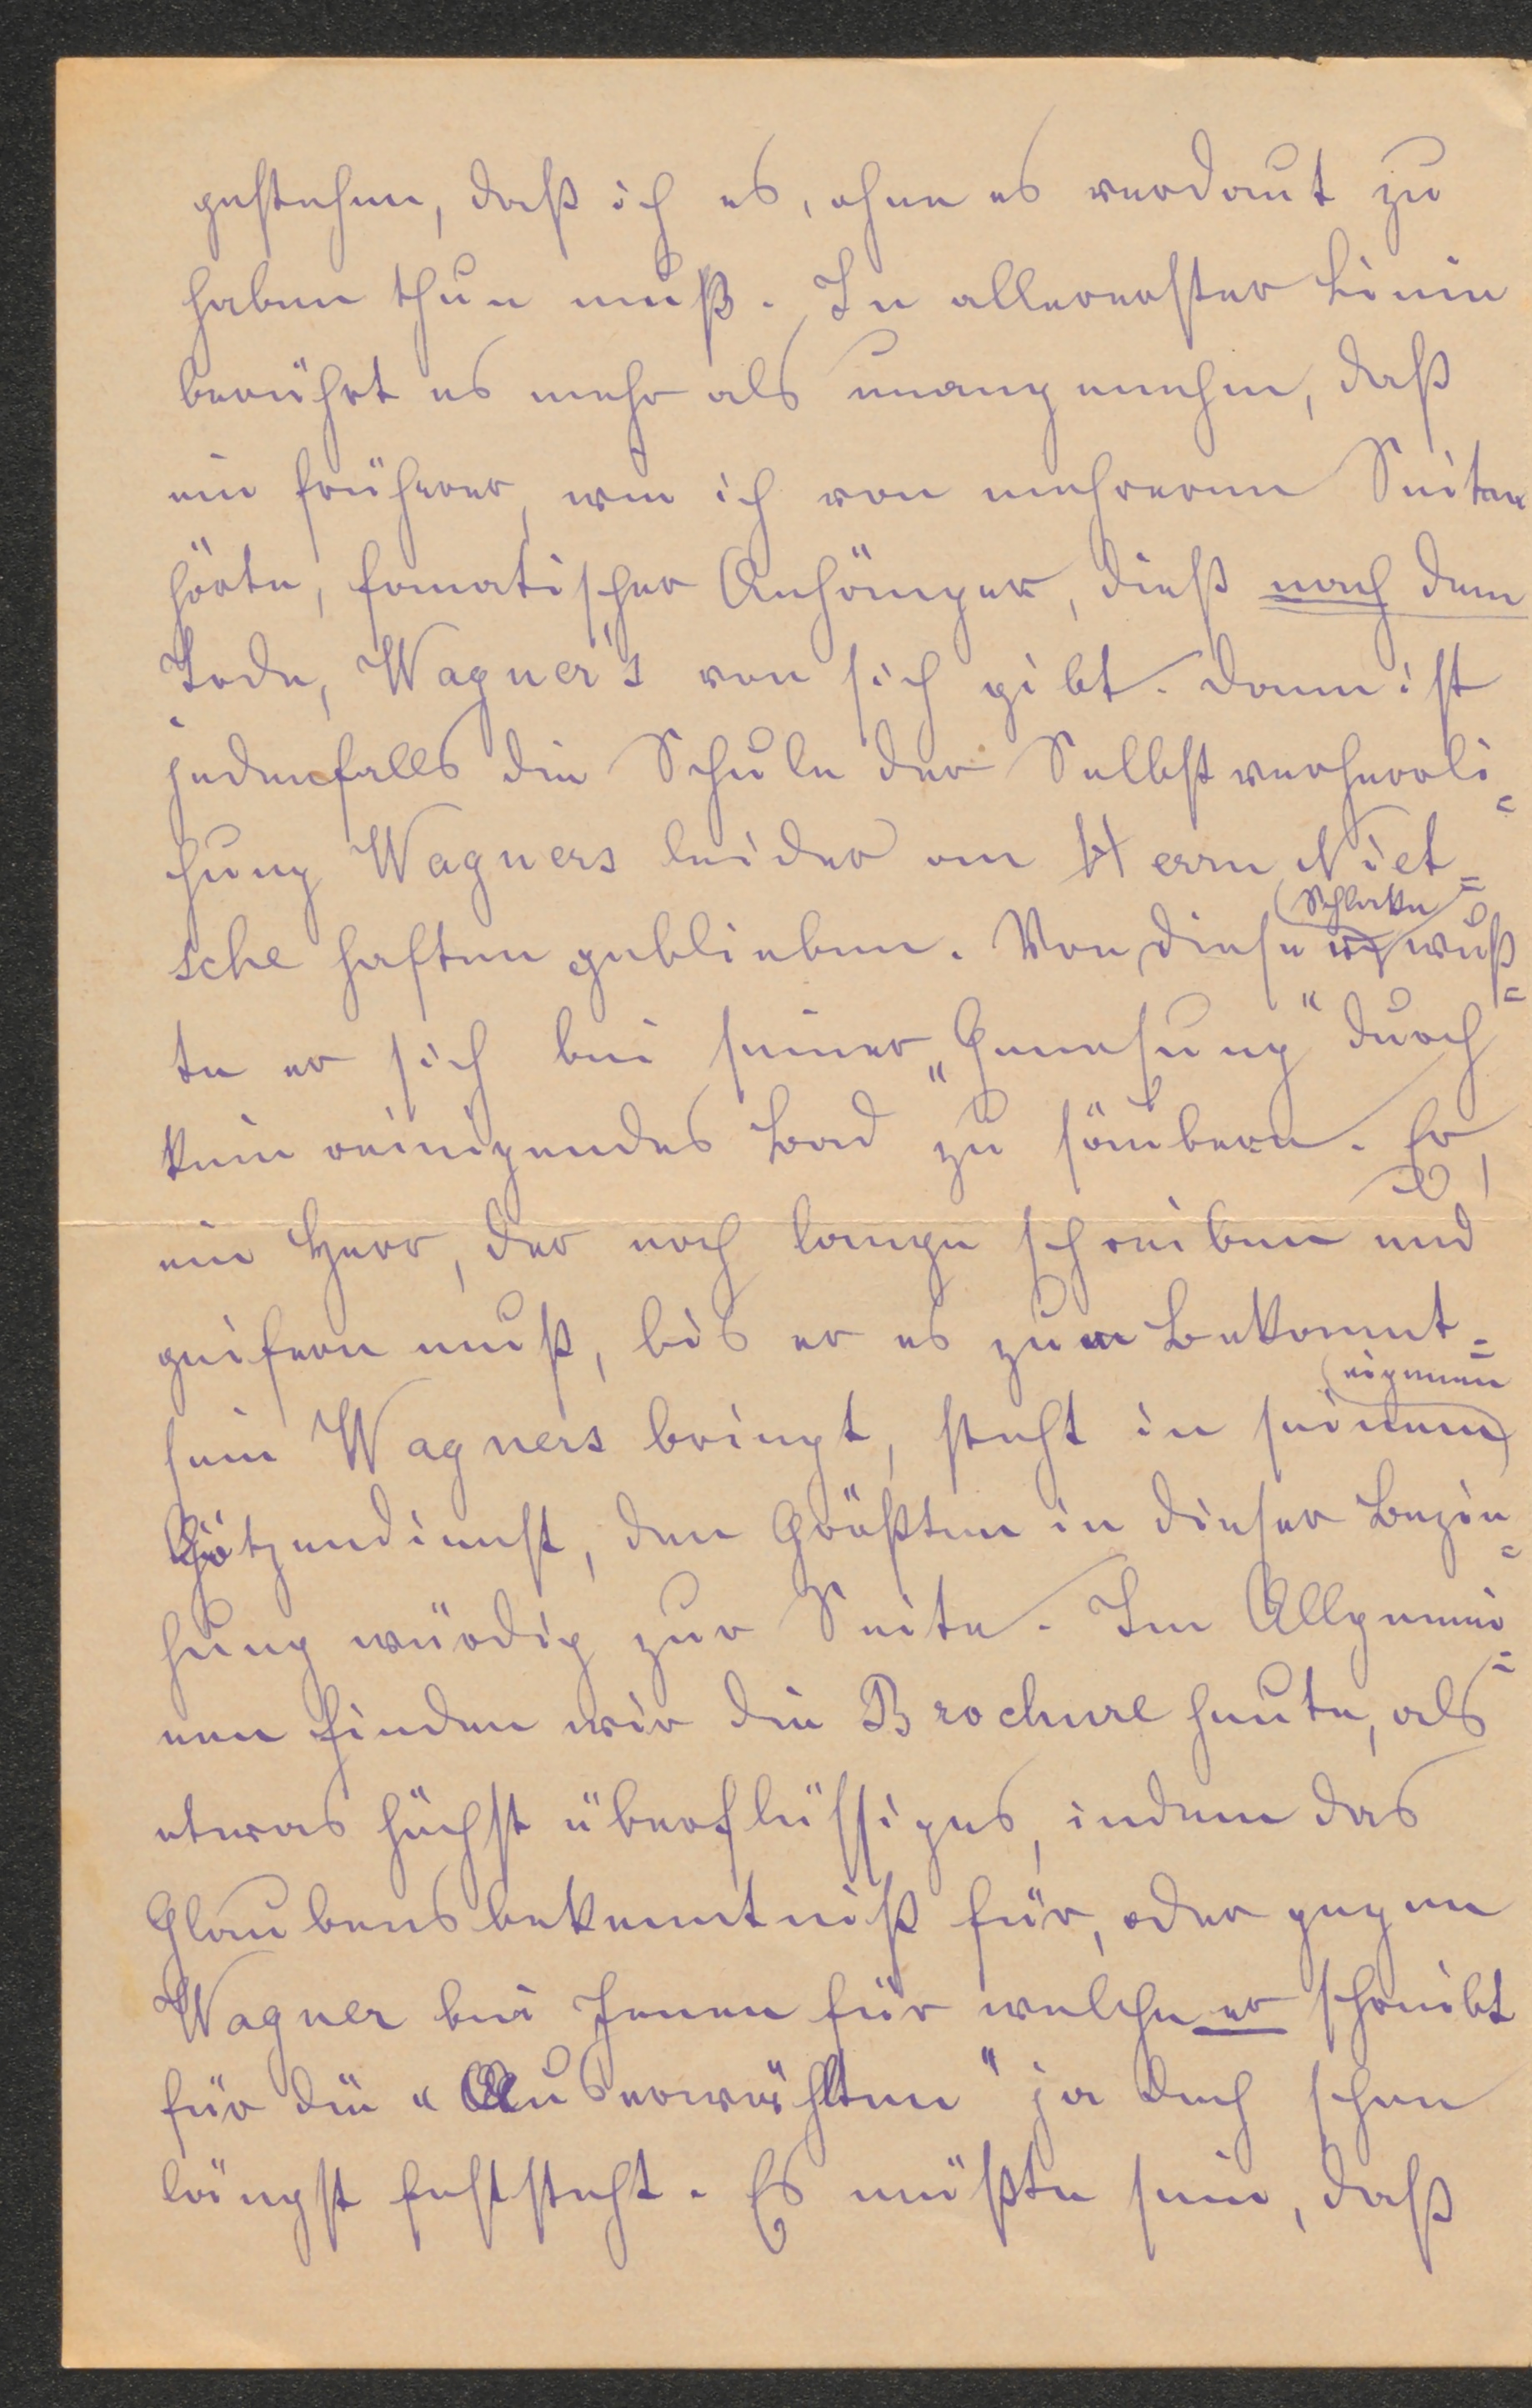 gestehen, daß ich es, ohne es verdaut zu
haben thun muß. In allererster Linie
berührt es mehr als unangenehm, daß
ein früherer, wie ich von mehreren Seiten
hörte, fanatischer Anhänger, dieß nach dem
Tode, Wagner's von sich gibt. Dann ist
jedenfalls die Schule der Selbstverherrli=
chung Wagners leider an Herrn Niet=
sche haften geblieben. Von dieser Schlacke wuß=
te er sich bei seiner „Genesung" durch
kein reinigendes Bad zu säubern. Er,
ein Herr, der noch lange schreiben und
geifern muß, bis er es zum Bekannt=
sein Wagners bringt, steht in seinem eigenen
Götzendienst, den Größten in dieser Bezie=
hung würdig zur Seite. Im Allgemei=
nen finden wir die Brochure heute, als
etwas höchst überflüssiges, indem das
Glaubensbekenntniß für, oder gegen
Wagner bei Jenen für welche er schreibt
für die „Auserwählten" ja doch schon
längst feststeht. Es müßte sein, daß